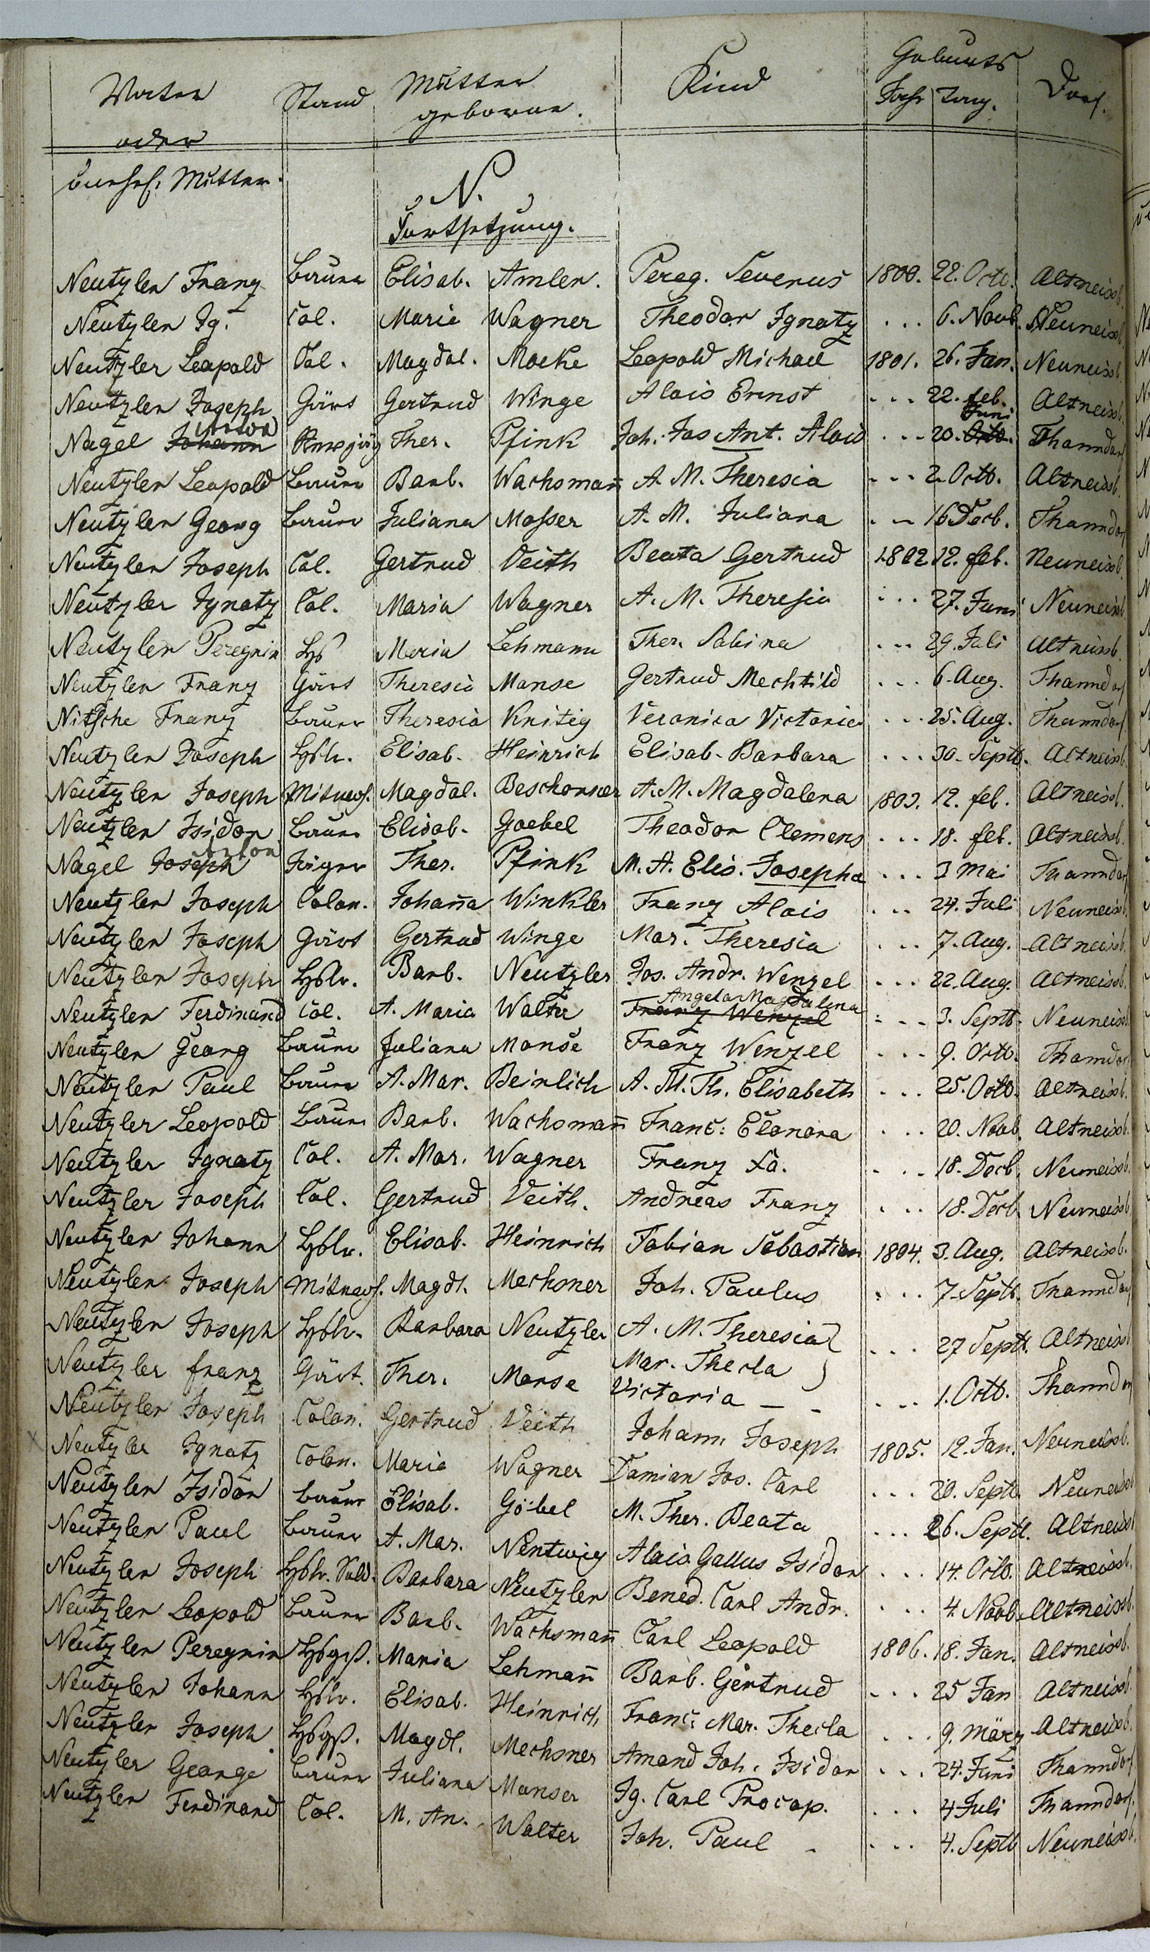 Vater Stand Mutter Kind Geburts Dorf.
oder geborne. Jahr Tag.
unehel. Mutter.
N.
Fortsetzung.
Neutzler Franz Bauer Elisab. Amler. Pereg. Severus 1800. 22. Octb. Altneissb.
Neutzler Ig. Col. Maria Wagner Theodor Ignatz ... 6. Novb. Neuneissb.
Neutzler Leopold Col. Magdal. Moche Leopold Michael 1801. 26. Jan. Neuneissb.
Neutzler Joseph Gärt Gertrud Winge Alois Ernst ... 22. feb. Altneissb.
Nagel Johann Anton Ther. Pfink Joh. Jos Ant. Alois ... 20. Octb. Juni Thanndorf
Neutzler Leopold Bauer Barb. Wachsmañ A. M. Theresia ... 2. Octb. Altneissb.
Neutzler Georg Bauer Juliana Mosser A. M. Juliana ... 16 Decb. Thanndorf
Neutzler Joseph Col. Gertrud Veith Beata Gertrud 1802 12. feb. Neuneissb.
Neutzler Ignatz Col. Maria Wagner A. M. Theresia ... 27. Juni Neuneissb.
Neutzler Peregrin Hß Maria Lehmann Ther. Sabina ... 29. Juli Altneissb.
Neutzler Franz Gärt Theresia Manse Gertrud Mechtild ... 6. Aug. Thanndorf
Nitsche Franz Bauer Theresia Knitig Veronica Victoria ... 25. Aug. Thanndorf
Neutzler Joseph Hßlr. Elisab. Heinrich Elisab. Barbara ... 30. Septb. Altneissb.
Neutzler Joseph Magdal. Beschorner A. M. Magdalena 1803. 12. feb. Altneissb.
Neutzler Isidor Bauer Elisab. Goebel Theodor Clemens ... 18. feb. Altneissb.
Nagel Joseph Anton Jäger Ther. Pfink M. A. Elis. Josepha ... 3 Mai Thanndorf
Neutzler Joseph Colon. Johaña Winkler Franz Alois ... 24. Juli Neuneissb.
Neutzler Joseph Gärt Gertrud Winge Mar. Theresia ... 7. Aug. Altneissb.
Neutzler Joseph Hßlr. Barb. Neutzler Jos. Andr. Wenzel ... 22. Aug. Altneissb.
Neutzler Ferdinand Col. A. Maria Walter Franz Wenzel Angela Magdalena ... 3. Septb. Neuneissb.
Neutzler Georg Bauer Juliana Manse Franz Wenzel ... 9. Octb. Thanndorf
Neutzler Paul Bauer A. Mar. Beinlich A. M. Th. Elisabeth ... 25. Octb. Altneissb.
Neutzler Leopold Bauer Barb. Wachsmañ Franc: Elonora ... 20. Novb. Altneissb.
Neutzler Ignatz Col. A. Mar. Wagner Franz Xa. ... 18. Decb. Neuneissb.
Neutzler Joseph Col. Gertrud Veith. Andreas Franz ... 18. Decb. Neuneissb.
Neutzler Johann Hßlr. Elisab. Heinrich Fabian Sebastian 1804. 3. Aug. Altneissb.
Neutzler Joseph Magdl. Mechsner Joh. Paulus ... 7. Septb. Thanndorf
Neutzler Joseph Hßlr. Barbara Neutzler A. M. Theresia ... 27 Septb. Altneissb.
Mar. Thecla
Neutzler franz Gärt. Ther. Manse Victoria ... 1. Octb. Thanndorf
Neutzler Joseph Colon. Gertrud Veith Johann Joseph 1805. 12. Jan. Neuneissb.
Neutzler Ignatz Colon. Maria Wagner Damian Jos. Carl ... 20. Septb. Neuneissb.
Neutzler Isidor Bauer Elisab. Göbel M. Ther. Beata ... 26. Septb. Altneissb.
Neutzler Paul Bauer A. Mar. Nentwig Alois Gallus Isidor ... 14. Octb. Altneissb.
Neutzler Joseph Hßlr. Barbara Neutzler Bened. Carl Andr. ... 4. Novb. Altneissb.
Neutzler Leopold Bauer Barb. Wachsmañ Carl Leopold 1806. 18. Jan. Altneissb.
Neutzler Peregrin Maria Lehmañ Barb. Gertrud ... 25 Jan Altneissb.
Neutzler Johann Hßlr. Elisab. Heinrich Franc: Mar. Thecla ... 9. März Altneissb.
Neutzler Joseph Magdl. Mechsner Amand Joh. Isidor ... 24. Juni Thanndorf
Neutzler George Bauer Juliana Manser Ig. Carl Procop. ... 4 Juli Thanndorf.
Neutzler Ferdinand Col. M. An. Walter Joh. Paul ... 4. Septb Neuneissb.